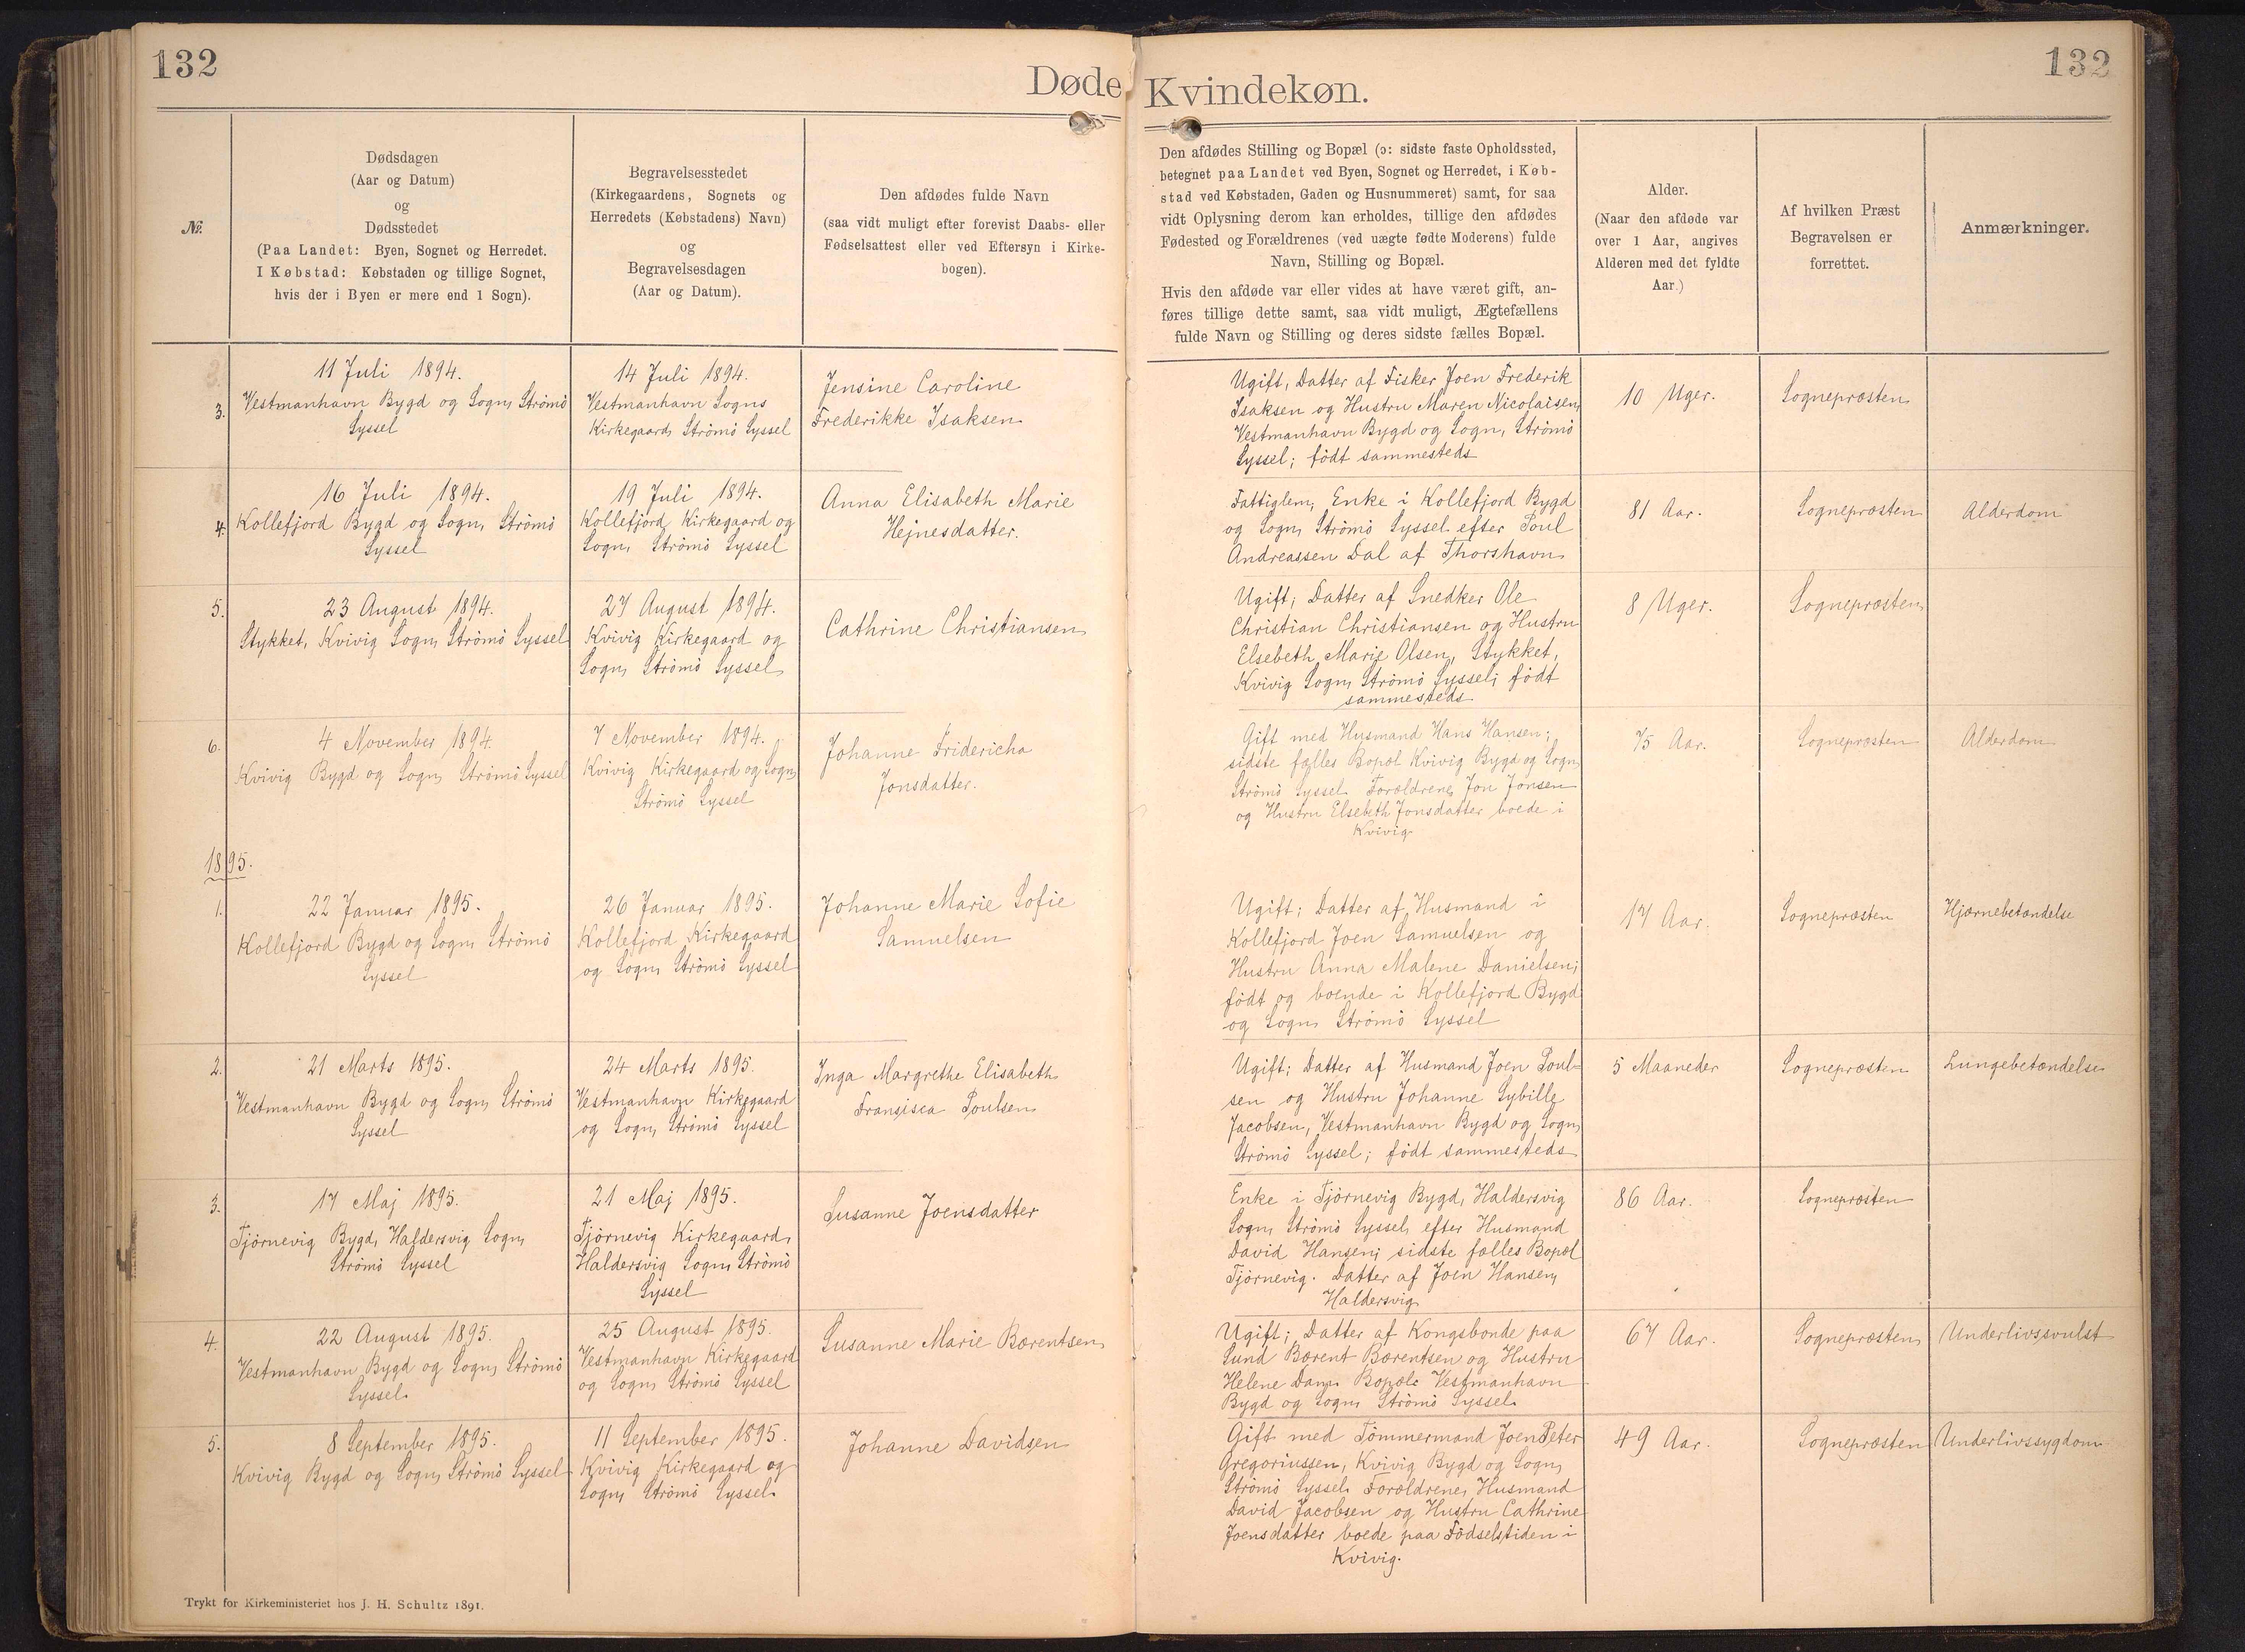 132
132
Døde Kvindekøn.
No.
Dødsdagen
(Aar og Datum)
og
Dødsstedet
(Paa Landet: Byen, Sognet og Herredet.
I Købstad: Købstaden og tillige Sognet,
hvis der i Byen er mere end 1 Sogn).
Begravelsesstedet
(Kirkegaardens, Sognets og
Herredets (Købstadens) Navn)
og
Begravelsesdagen
(Aar og Datum).
Den afdødes fulde Navn
(saa vidt muligt efter forevist Daabs- eller
Fødselsattest eller ved Eftersyn i Kirke-
bogen).
Den afdødes Stilling og Bopæl (ɔ: sidste faste Opholdssted,
betegnet paa Landet ved Byen, Sognet og Herredet, i Køb-
stad ved Købstaden, Gaden og Husnummeret) samt, for saa
vidt Oplysning derom kan erholdes, tillige den afdødes
Fødested og Forældrenes (ved uægte fødte Moderens) fulde
Navn, Stilling og Bopæl.
Hvis den afdøde var eller vides at have været gift, an-
føres tillige dette samt, saa vidt muligt, Ægtefællens
fulde Navn og Stilling og deres sidste fælles Bopæl.
Alder.
(Naar den afdøde var
over 1 Aar, angives
Alderen med det fyldte
Aar.)
Af hvilken Præst
Begravelsen er
forrettet.
Anmærkninger.
3.
11 Juli 1894.
Vestmanhavn Bygd og Sogn, Strömö
Syssel
14 Juli 1894.
Vestmanhavn Sogns
Kirkegaard, Strömö Syssel
Jensine Caroline
Frederikke Isaksen
Ugift, Datter af Fisker Joen Frederik
Isaksen og Hustru Maren Nicolaisen,
Vestmanhavn Bygd og Sogn, Strömö
Syssel; födt sammesteds
10 Uger.
Sognepræsten
4.
16 Juli 1894.
Kollefjord Bygd og Sogn, Strömö
Syssel
19 Juli 1894.
Kollefjord Kirkegaard og
Sogn, Strömö Syssel
Anna Elisabeth Marie
Hejnesdatter.
Fattiglem, Enke i Kollefjord Bygd
og Sogn, Strömö Syssel efter Poul
Andreassen Dal af Thorshavn
81 Aar.
Sognepræsten
Alderdom
5.
23 August 1894.
Stykket, Kvivig Sogn, Strömö Syssel
27 August 1894.
Kvivig Kirkegaard og
Sogn, Strömö Syssel
Cathrine Christiansen
Ugift; Datter af Snedker Ole
Christian Christiansen og Hustru
Elsebeth Marie Olsen, Stykket,
Kvivig Sogn, Strömö Syssel; födt
sammesteds
8 Uger.
Sognepræsten
6.
4 November 1894.
Kvivig Bygd og Sogn, Strömö Syssel
7 November 1894.
Kvivig Kirkegaard og Sogn,
Strömö Syssel
Johanne Fridericha
Jonsdatter.
Gift med Husmand Hans Hansen;
sidste fælles Bopæl Kvivig Bygd og Sogn,
Strömö Syssel. Forældrene, Jon Jonsen
og Hustru Elsebeth Jonsdatter boede i
Kvivig
75 Aar.
Sognepræsten
Alderdom
1895.
1.
22 Januar 1895.
Kollefjord Bygd og Sogn, Strömö
Syssel
26 Januar 1895.
Kollefjord Kirkegaard
og Sogn, Strömö Syssel
Johanne Marie Sofie
Samuelsen
Ugift; Datter af Husmand i
Kollefjord Joen Samuelsen og
Hustru Anna Malene Danielsen;
födt og boende i Kollefjord Bygd
og Sogn, Strömö Syssel
17 Aar.
Sognepræsten
Hjærnebetændelse
2.
21 Marts 1895.
Vestmanhavn Bygd og Sogn, Strömö
Syssel
24 Marts 1895.
Vestmanhavn Kirkegaard
og Sogn, Strömö Syssel
Inga Margrethe Elisabeth
Fransisca Poulsen
Ugift; Datter af Husmand Joen Poul-
sen og Hustru Johanne Sybille
Jacobsen, Vestmanhavn Bygd og Sogn,
Strömö Syssel; födt sammesteds
5 Maaneder
Sognepræsten
Lungebetændelse
3.
17 Maj 1895.
Tjörnevig Bygd, Haldersvig Sogn,
Strömö Syssel
21 Maj 1895.
Tjörnevig Kirkegaard,
Haldersvig Sogn, Strömö
Syssel
Susanne Joensdatter
Enke i Tjörnevig Bygd, Haldersvig
Sogn, Strömö Syssel, efter Husmand
David Hansen; sidste fælles Bopæl
Tjörnevig. Datter af Joen Hansen,
Haldersvig
86 Aar.
Sognepræsten
4.
22 August 1895.
Vestmanhavn Bygd og Sogn, Strömö
Syssel.
25 August 1895.
Vestmanhavn Kirkegaard
og Sogn, Strömö Syssel
Susanne Marie Bærentsen
Ugift; Datter af Kongsbonde paa
Sund Bærent Bærentsen og Hustru
Helene Dam. Bopæl: Vestmanhavn
Bygd og Sogn, Strömö Syssel.
67 Aar.
Sognepræsten
Underlivssvulst
5.
8 September 1895.
Kvivig Bygd og Sogn, Strömö Syssel
11 September 1895.
Kvivig Kirkegaard og
Sogn, Strömö Syssel.
Johanne Davidsen
Gift med Tömmermand Joen Peter
Gregoriussen, Kvivig Bygd og Sogn,
Strömö Syssel. Forældrene, Husmand
David Jacobsen og Hustru Cathrine
Joensdatter boede paa Födselstiden i
Kvivig.
49 Aar.
Sognepræsten
Underlivssygdom
Trykt for Kirkeministeriet hos J. H. Schultz 1891.